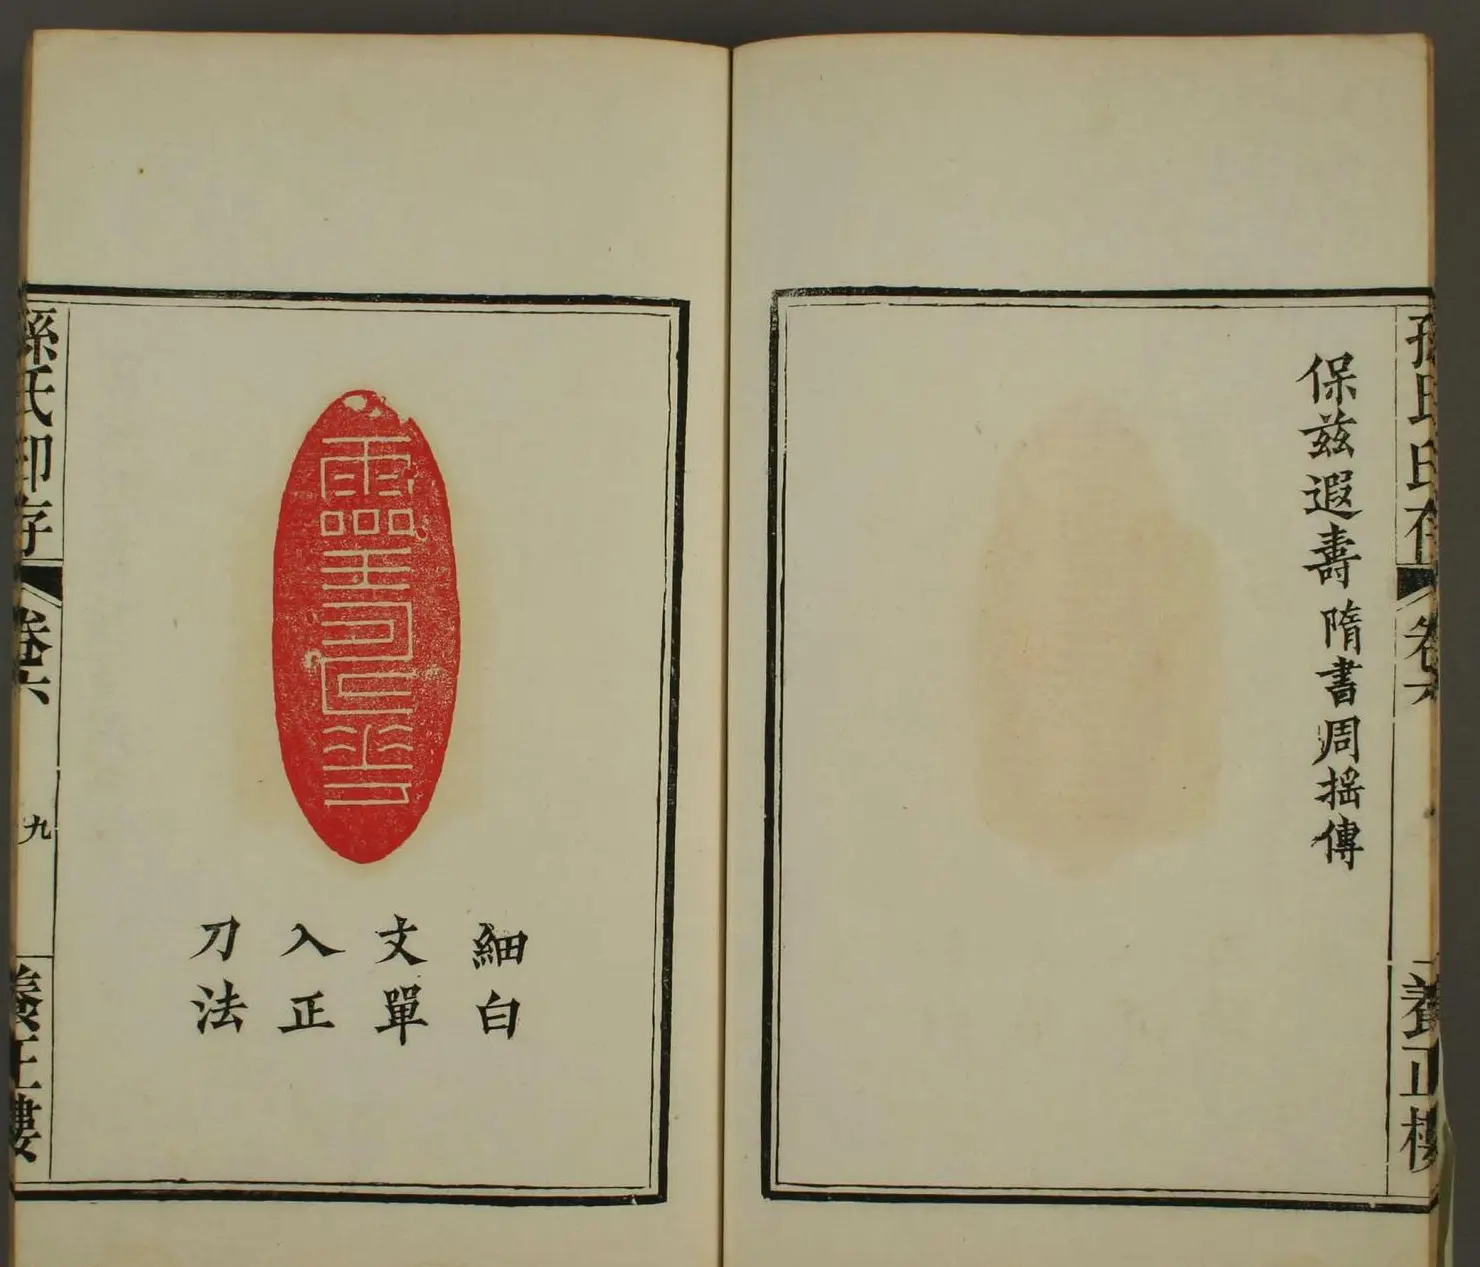 孫氏印存 卷六 養正樓
保兹遐壽 隋書周摇傳
細白
文單
入正
刀法
孫氏印存 卷六 九 養正樓